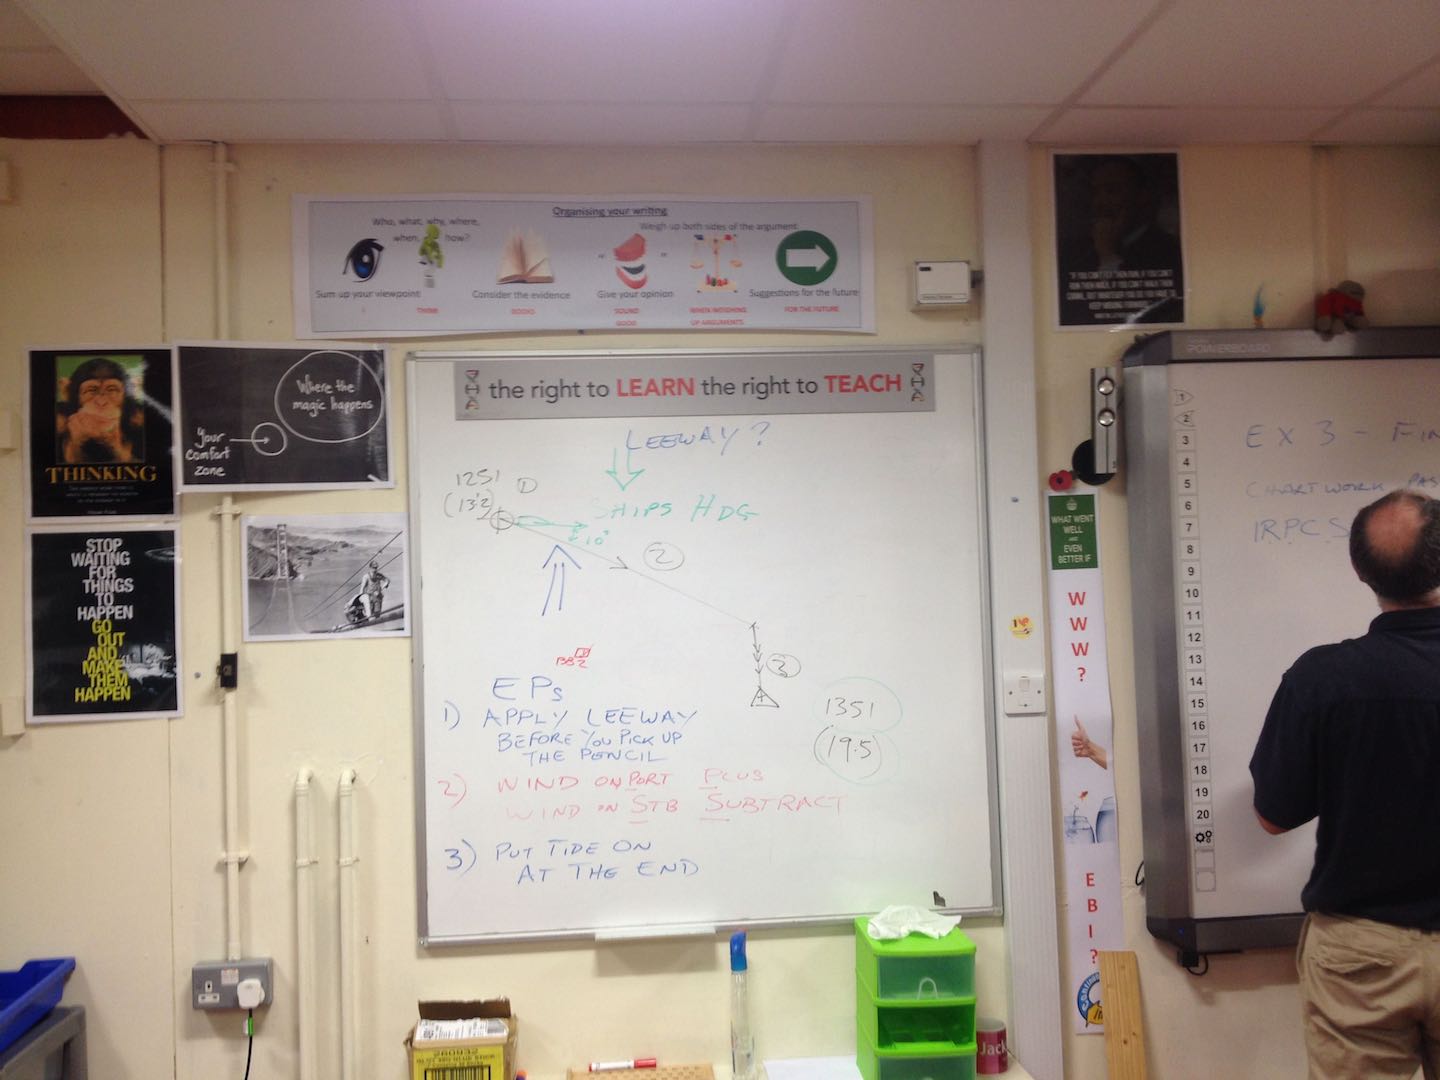 Organising your writing
Who, what, why, where,
when, how?
Weigh up both sides of the argument
Sum up your viewpoint
Consider the evidence
Give your opinion
Suggestions for the future
THINK
BOOKS
SOUND
GOOD
WHEN WEIGHING
UP ARGUMENTS
FOR THE FUTURE
THINKING
Where the
magic happens
Your
comfort
zone
STOP
WAITING
FOR
THINGS
TO
HAPPEN
GO
OUT
AND
MAKE
THEM
HAPPEN
the right to LEARN the right to TEACH
LEEWAY?
1251
(13.2)
SHIPS HDG
10°
2
2
1351
(19.5)
EPs
1) APPLY LEEWAY
BEFORE YOU PICK UP
THE PENCIL
2) WIND ON PORT PLUS
WIND ON STB SUBTRACT
3) PUT TIDE ON
AT THE END
"IF YOU CAN'T FLY THEN RUN, IF YOU CAN'T
RUN THEN WALK, IF YOU CAN'T WALK THEN
CRAWL, BUT WHATEVER YOU DO YOU HAVE TO
KEEP MOVING FORWARD."
WHAT WENT
WELL
AND
EVEN
BETTER IF
W
W
W
?
E
B
I
?
POWERBOARD
1
2
3
4
5
6
7
8
9
10
11
12
13
14
15
16
17
18
19
20
EX 3 - FIN
CHARTWORK PAS
IRPCS
260932
Jack